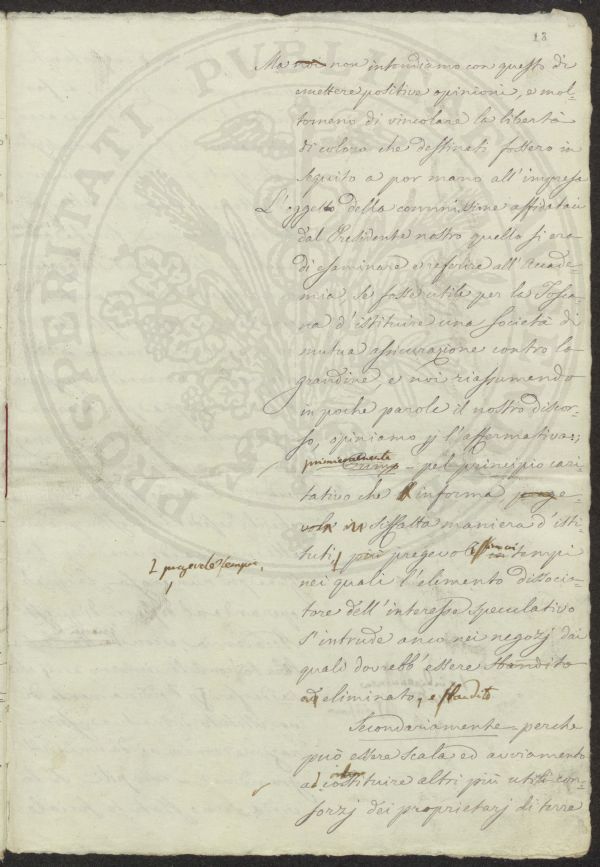 13
PROSPERITATI PUBLICAE
Ma noi non intendiamo con questo di
emettere positive opinioni, e mol=
tomeno di vincolare la libertà
di coloro che destinati fossero in
seguito a por mano all'impresa
L'oggetto della commissione affidataci
dal Presidente nostro quello si era
di esaminare e referire all'Accade=
mia, se fosse utile per la Tosca=
na d'istituire una società di
mutua assicurazione contro la
grandine e noi riassumendo
in poche parole il nostro discor=
so, opiniamo per l'affermativa;
primieramente
pel principio cari=
tativo che informa prege=
vole in siffatta maniera d'isti=
tuti più pregevole in tempi
2 pregevole sempre,
nei quali l'elemento dissocia=
tore dell'interesse speculativo
s'intrude anco nei negozj dai
quali dovrebb'essere sbandito
ed eliminato, e sbandito
Secondariamente = perchè
può essere scala ed avviamento
ad costituire altri più utili con=
sorzj dei proprietarj di terre